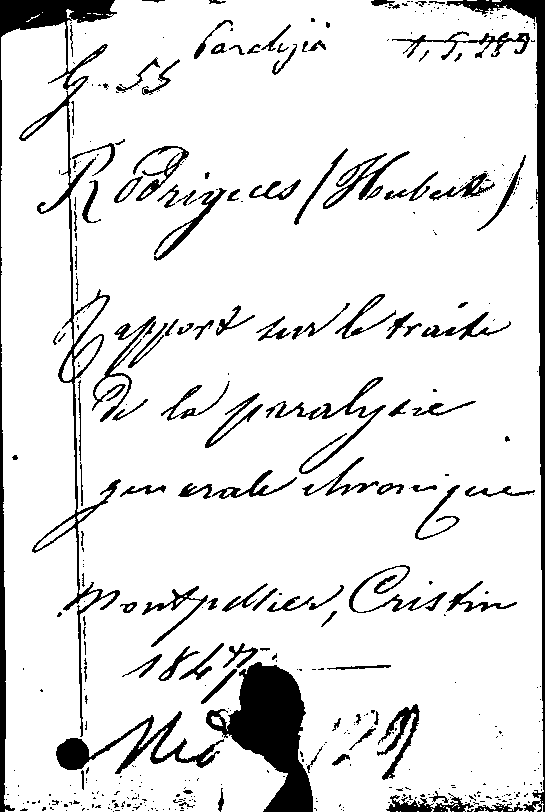 Paralysis 1,5,289
G. 55
Rodrigues (Hubert)
Rapport sur le traité
de la paralysie
generale chronique
Montpellier, Cristin
1847
Med 129